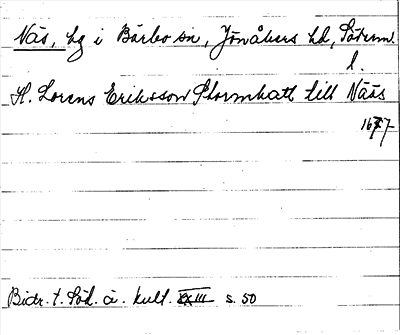 Näs, hg i Bärbo sn, Jönåkers hd, Söderm.
l.
H. Lorens Eriksson Stormhatt till Nääs
1677
Bidr. t. Söd. ä. kult. XXIII s. 50